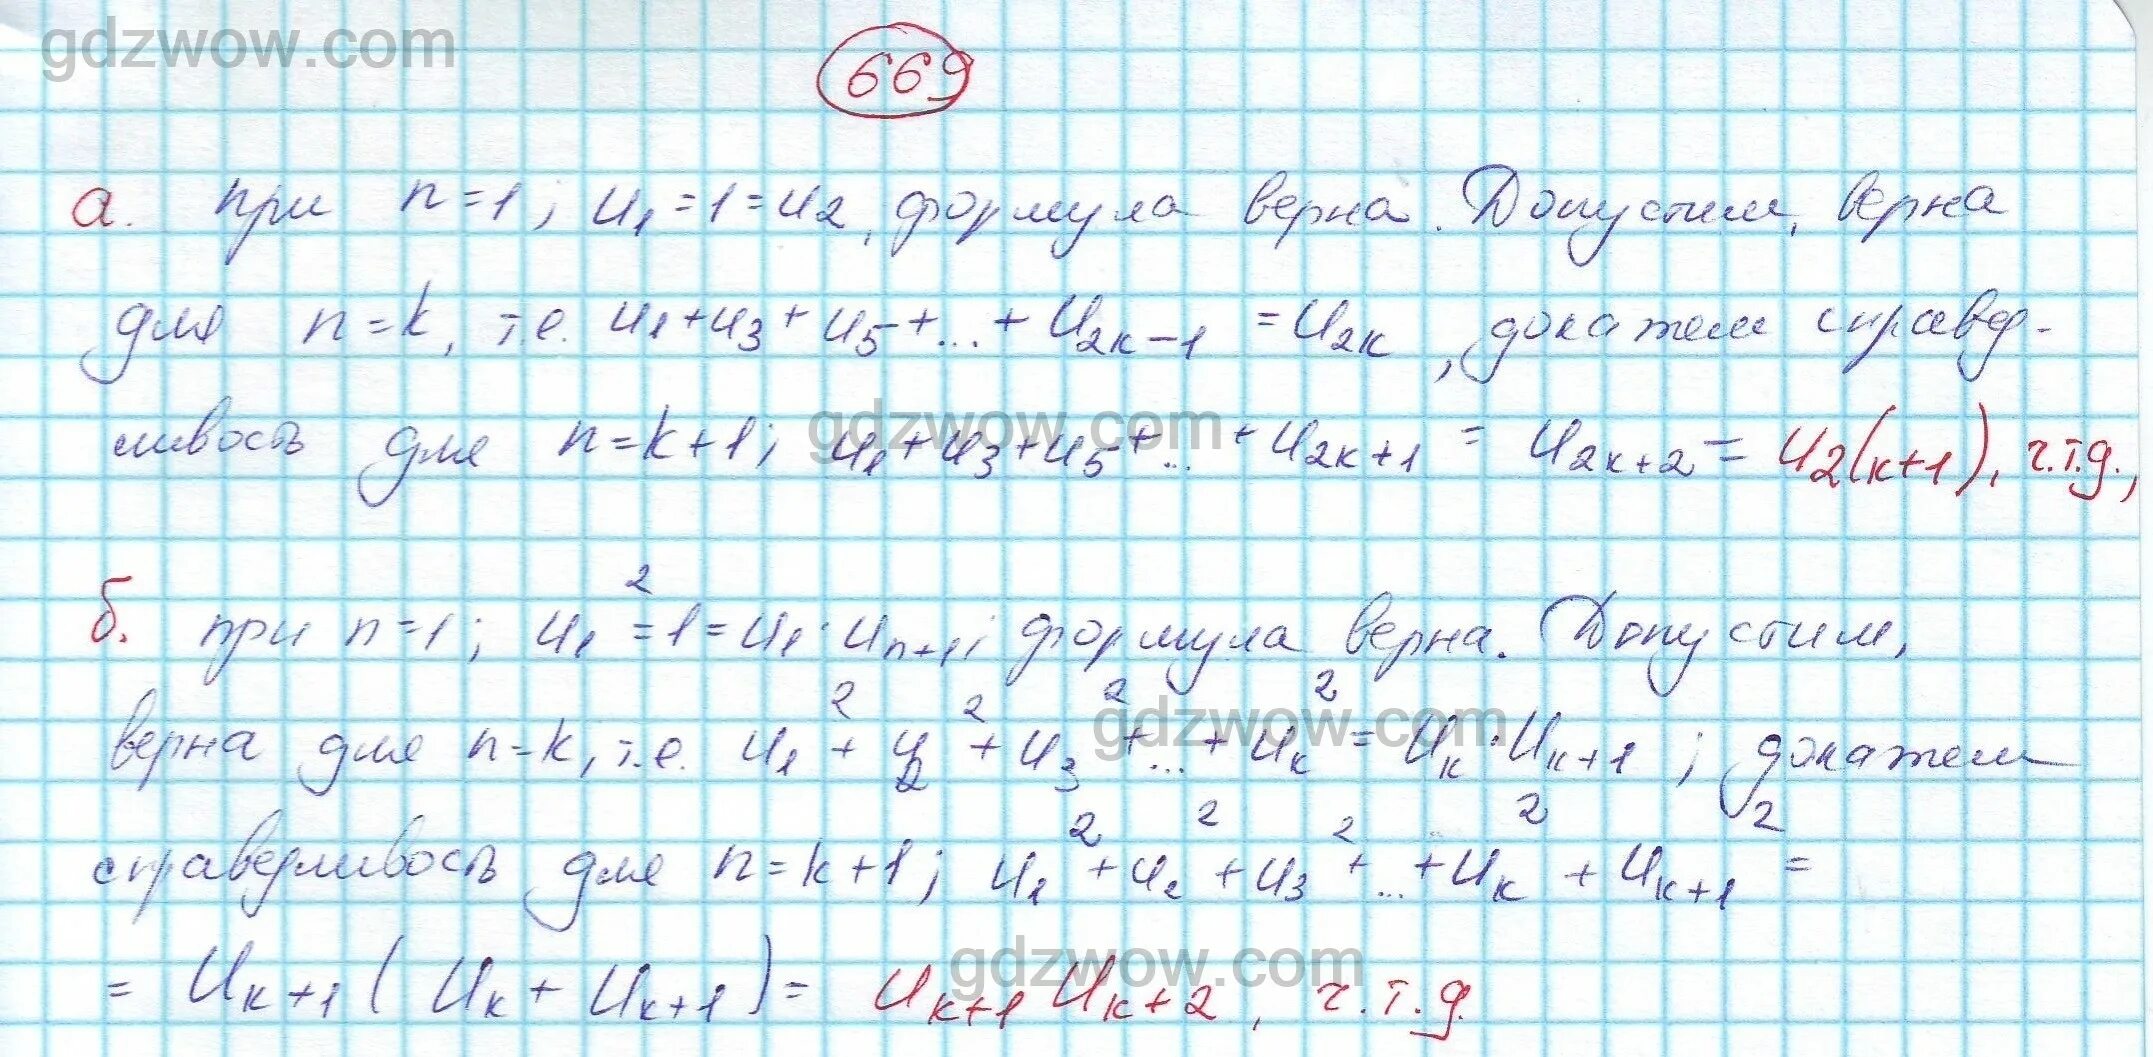 gdzwow.com
669
а. при n=1; u₁=1=u₂, формула верна. Допустим, верна
для n=k, т.е. u₁+u₃+u₅+...+u₂ₖ₋₁=u₂ₖ, докажем справед-
ливость для n=k+1; u₁+u₃+u₅+...+u₂ₖ₊₁=u₂ₖ₊₂=u₂₍ₖ₊₁₎, ч.т.д.,
gdzwow.com
б. при n=1; u₁²=1=u₁·uₙ₊₁; формула верна. Допустим,
верна для n=k, т.е. u₁²+u₂²+u₃²+...+uₖ²=uₖ·uₖ₊₁; докажем
gdzwow.com
справедливость для n=k+1; u₁²+u₂²+u₃²+...+uₖ²+uₖ₊₁²=
=uₖ₊₁(uₖ+uₖ₊₁)=uₖ₊₁uₖ₊₂, ч.т.д.
gdzwow.com